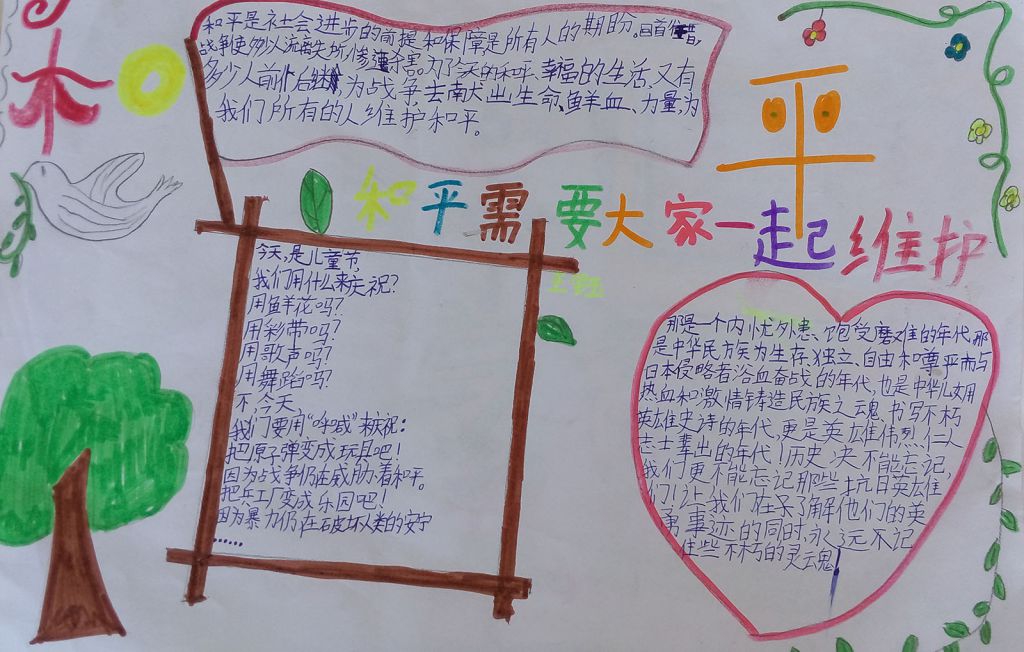 和平是社会进步的前提和保障是所有人的期盼。回首往昔,
战争使多少人流离失所,惨遭杀害。为了今天的和平、幸福的生活、又有
多少人前仆后继,为战争去献出生命、鲜血、力量,为
我们所有的人维护和平。
平
和平需要大家一起维护
主题
今天,是儿童节,
我们用什么来庆祝?
用鲜花吗?
用彩带吗?
用歌声吗?
用舞蹈吗?
不,今天
我们要用“呼喊”来庆祝:
把原子弹变成玩具吧!
因为战争仍在威胁着和平。
把兵工厂变成乐园吧!
因为暴力仍在破坏人类的安宁
......
那是一个内忧外患、饱受磨难的年代,那
是中华民族为生存、独立、自由和尊严而与
日本侵略者浴血奋战的年代,也是中华儿女用
热血和激情铸造民族之魂,书写不朽
英雄史诗的年代,更是英雄伟烈、仁人
志士辈出的年代!历史,决不能忘记,
我们更不能忘记那些抗日英雄
们!让我们在了解他们的英
勇事迹的同时,永远不记
些不朽的灵魂